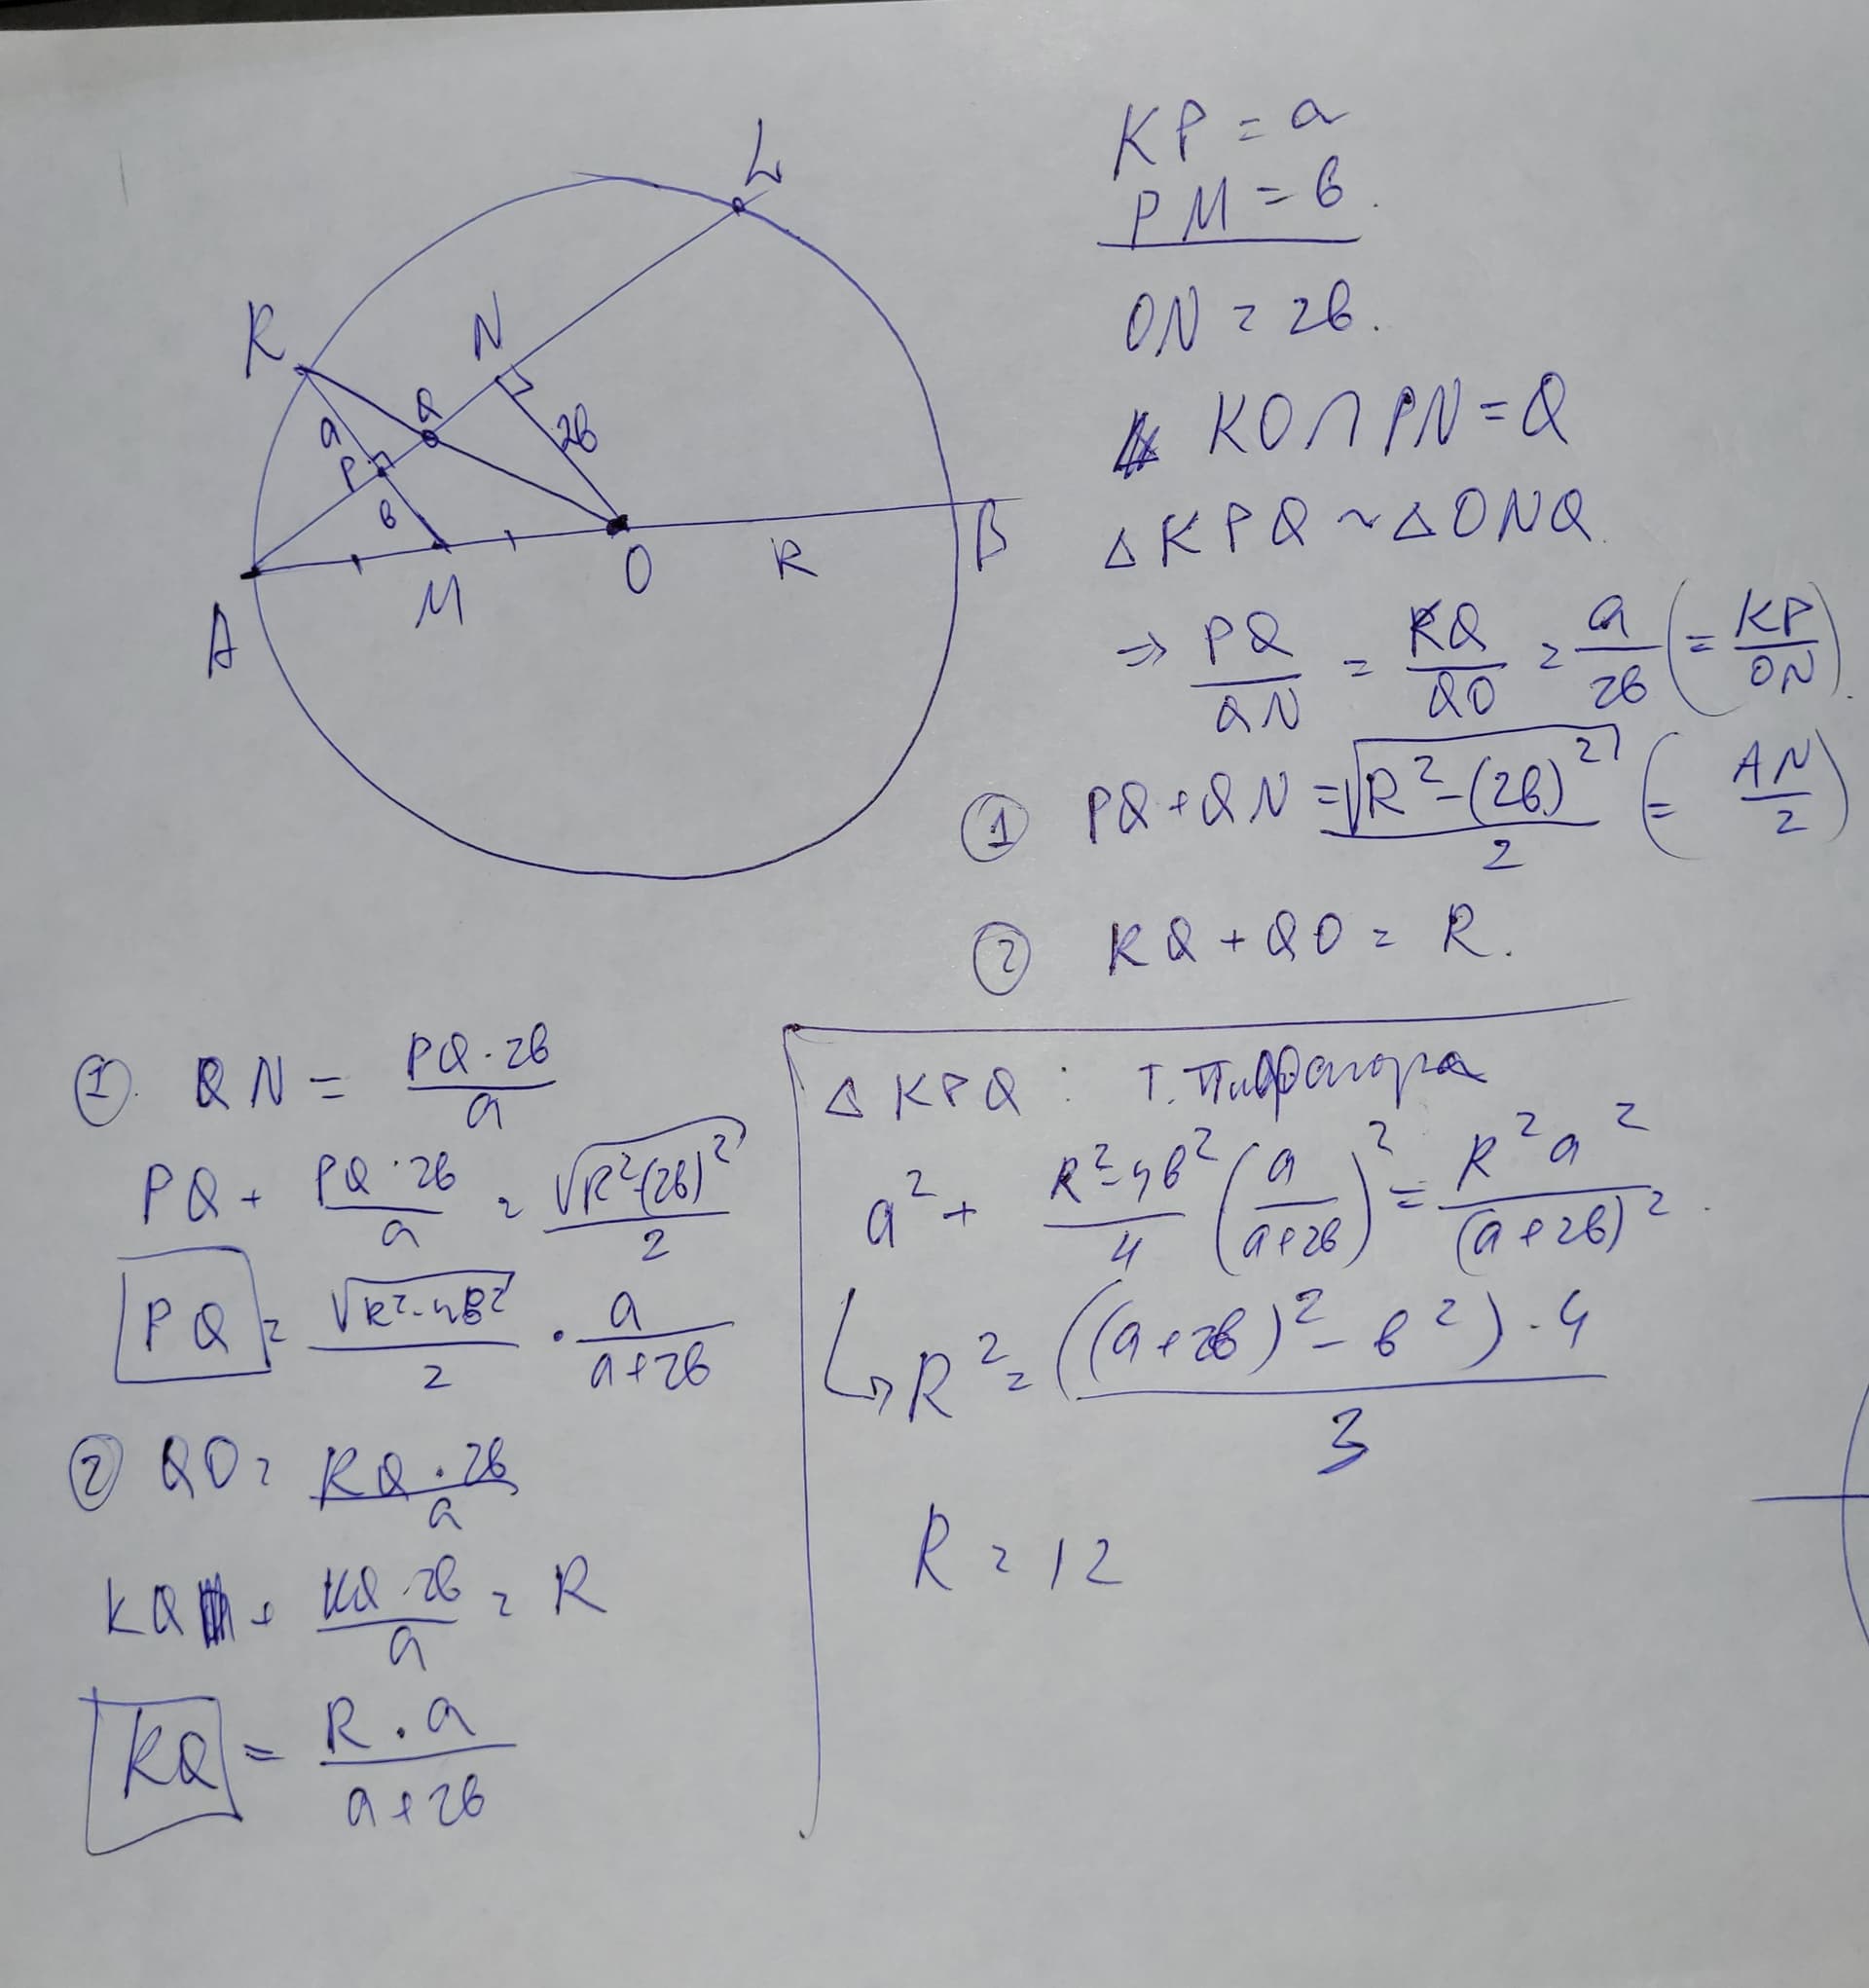 L
K
N
Q
a
P
2в
в
A
M
O
R
B
KP = a
PM = в.
ON = 2в.
KO ∩ PN = Q
△KPQ ~ △ONQ.
⇒ PQ/QN = KQ/QO = a/2в (= KP/ON).
① PQ + QN = √(R² - (2в)²)/2 (= AN/2)
② KQ + QO = R.
①. QN = PQ·2в/a
PQ + PQ·2в/a = √(R² - (2в)²)/2
PQ = √(R² - 4в²)/2 · a/(a+2в)
② QO = KQ·2в/a
KQ + KQ·2в/a = R
KQ = R·a/(a+2в)
△KPQ: т. Пифагора
a² + (R² - 4в²)/4 (a/(a+2в))² = R²a²/(a+2в)².
↳ R² = ((a+2в)² - в²)·4/3
R = 12